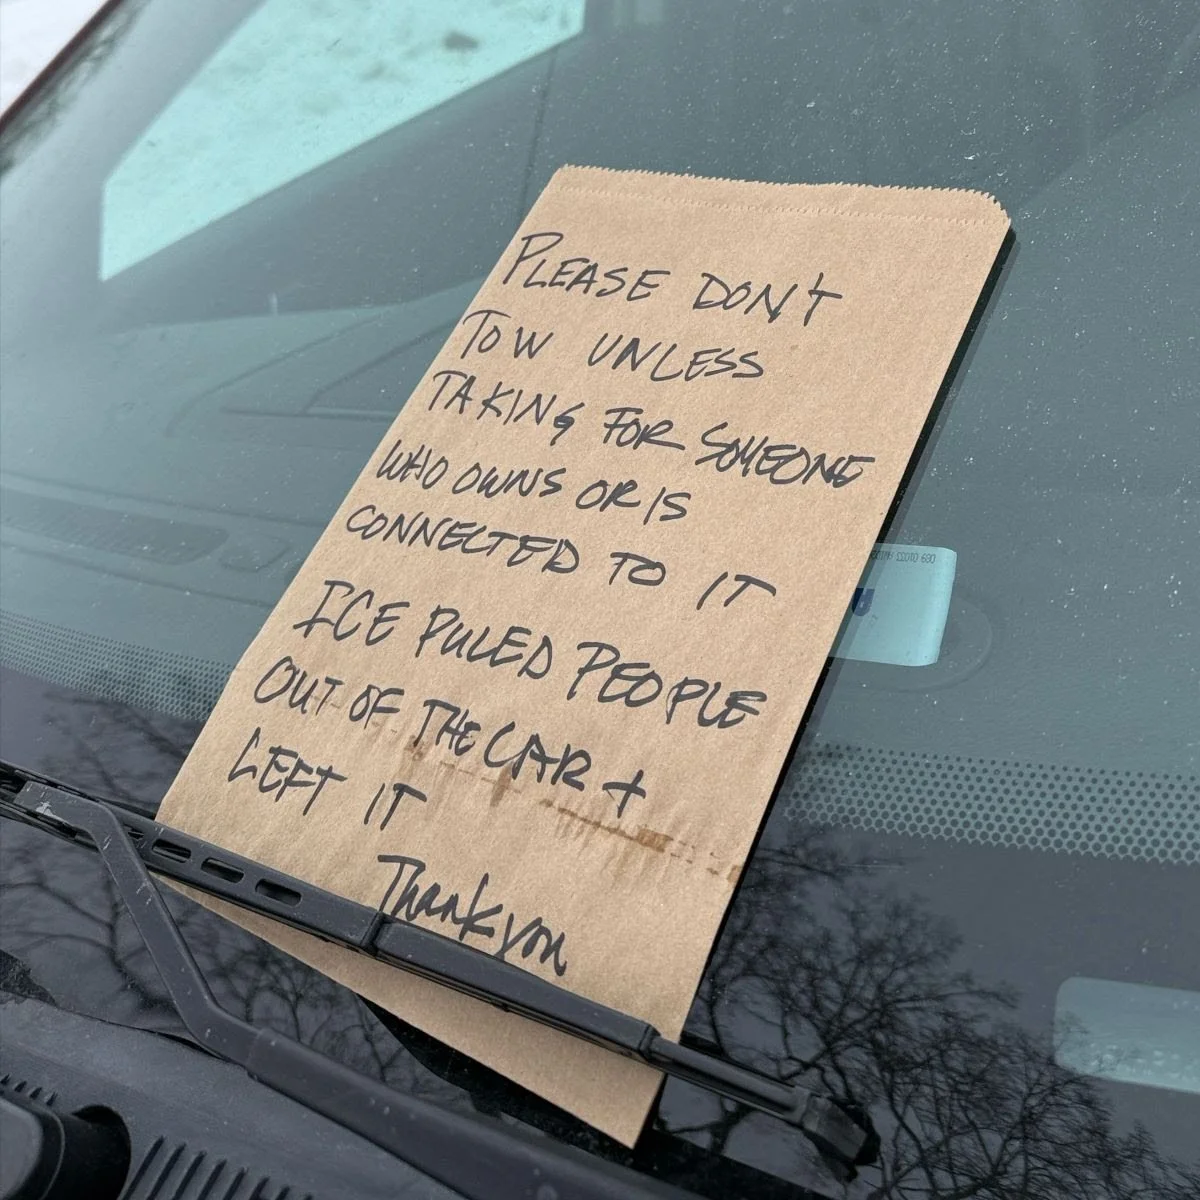 PLEASE DON'T
TOW UNLESS
TAKING FOR SOMEONE
WHO OWNS OR IS
CONNECTED TO IT
ICE PULLED PEOPLE
OUT OF THE CAR +
LEFT IT
Thank you